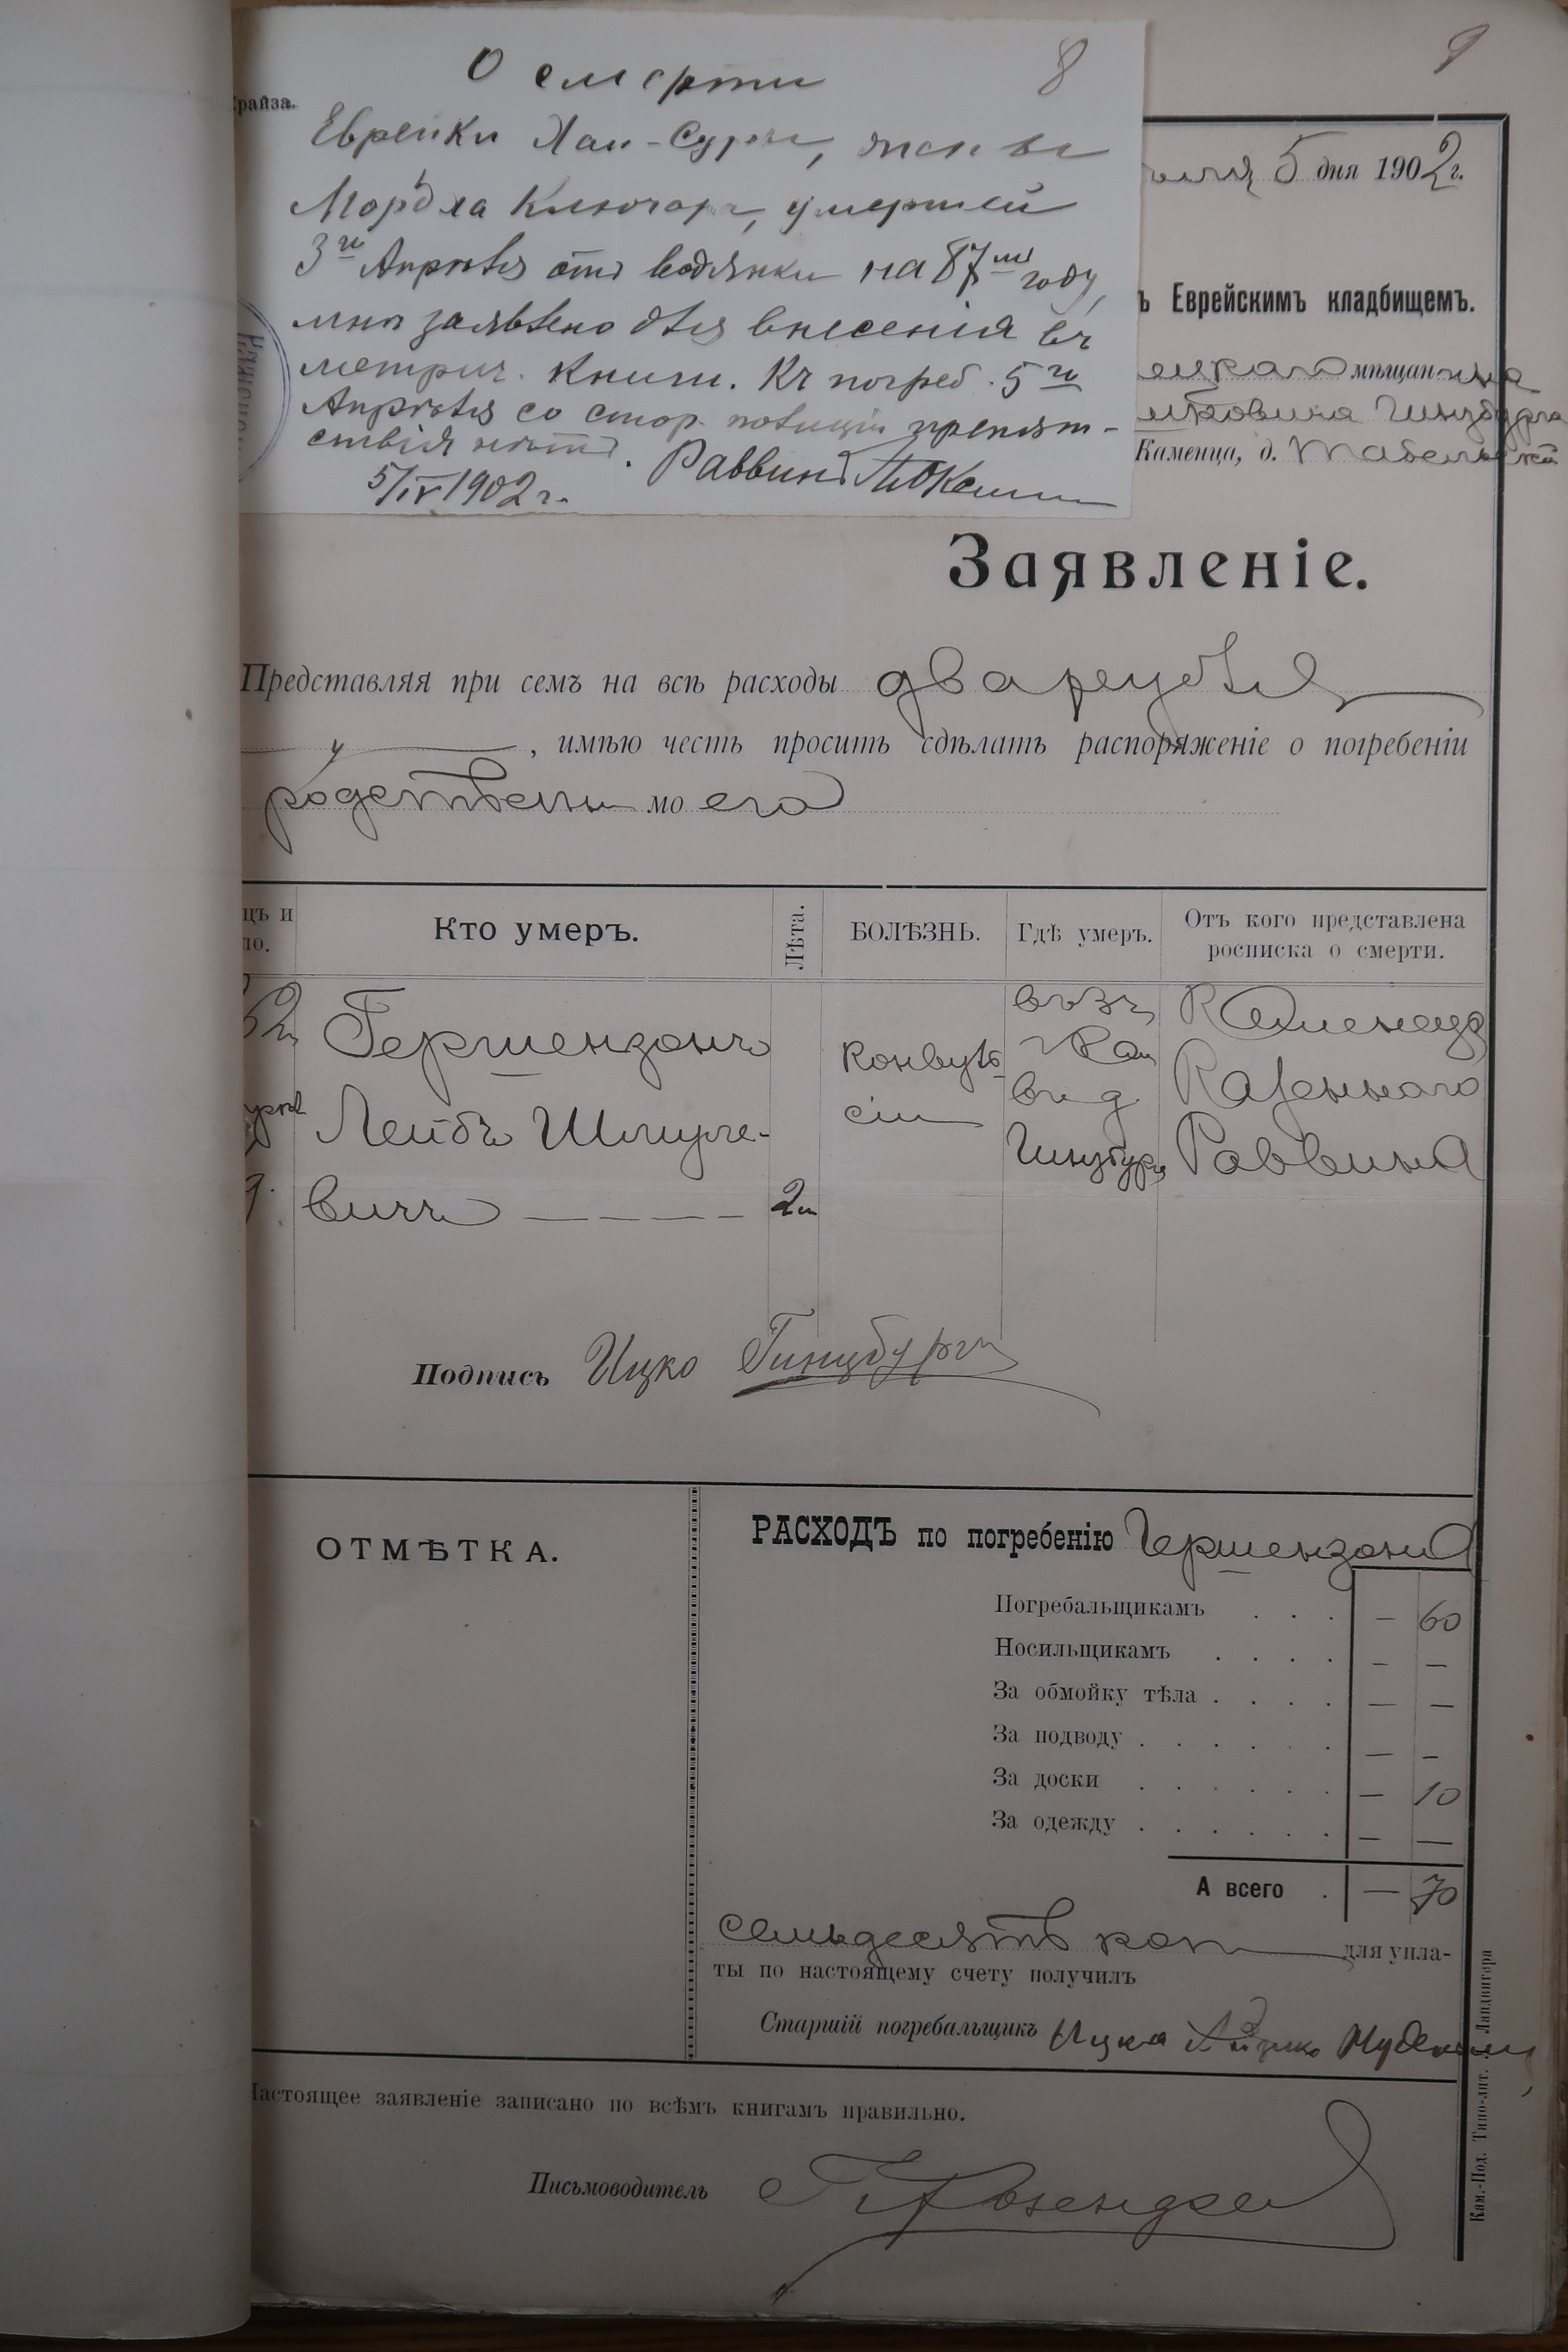 О смерти 8
Еврейки Хаи-Суры, жены
Мордка Ключара, умершей
3го Апрѣля отъ водянки на 87мъ году,
мнѣ заявлено для внесенія въ
метрич. книги. Къ погреб. 5го
Апрѣля со стор. полиціи препят-
ствія нѣтъ. Раввинъ
5/IV 1902 г.
9
райза.
5 дня 1902 г.
ъ Еврейскимъ кладбищемъ.
ецкаго мѣщанина
ковича Гинзбурга
Каменца, д.
Заявленіе.
Представляя при семъ на всѣ расходы два рубля
, имѣю честь просить сдѣлать распоряженіе о погребеніи
родственн моего
цъ и
ло.
Кто умеръ.
Лѣта.
БОЛѢЗНЬ.
Гдѣ умеръ.
Отъ кого представлена
росписка о смерти.
Гершензонъ
Лейбъ Шмуле-
вичъ
2м
конвуль
сіи
въ д.
Гинзбурга
Каменецк
Казеннаго
Раввина
Подпись Ицко Гинцбургъ
ОТМѢТКА.
РАСХОДЪ по погребенію Гершензона
Погребальщикамъ . . . — 60
Носильщикамъ . . . . — —
За обмойку тѣла . . . . — —
За подводу . . . . . . — —
За доски . . . . . — 10
За одежду . . . . . . — —
А всего . — 70
семьдесятъ коп для упла-
ты по настоящему счету получилъ
Старшій погребальщикъ Ицка
Настоящее заявленіе записано по всѣмъ книгамъ правильно.
Письмоводитель
Кам.-Под. Типо-лит. Ландвигера